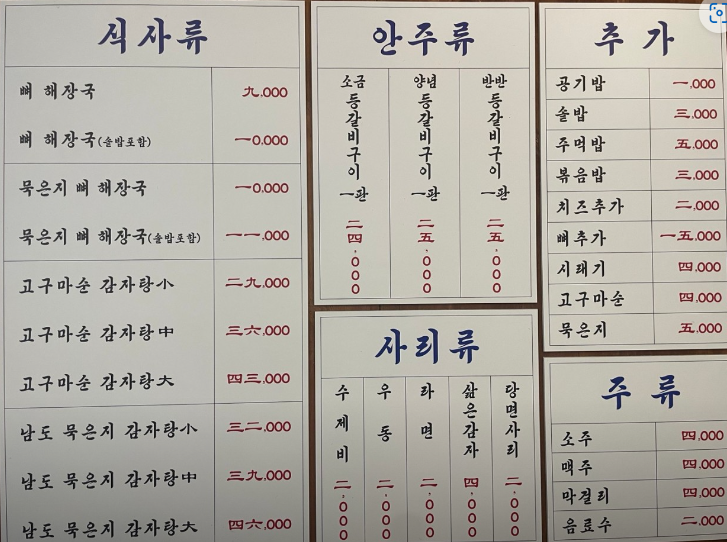 식사류
뼈 해장국 九.000
뼈 해장국(솥밥포함) 一0.000
묵은지 뼈 해장국 一0.000
묵은지 뼈 해장국(솥밥포함) 一一.000
고구마순 감자탕小 二九.000
고구마순 감자탕中 三六.000
고구마순 감자탕大 四三.000
남도 묵은지 감자탕小 三二.000
남도 묵은지 감자탕中 三九.000
남도 묵은지 감자탕大 四六.000
안주류
소금 등갈비구이 一판 二四.000
양념 등갈비구이 一판 二五.000
반반 등갈비구이 一판 二五.000
사리류
수제비 二.000
우동 二.000
라면 二.000
삶은감자 四.000
당면사리 二.000
추가
공기밥 一.000
솥밥 三.000
주먹밥 五.000
볶음밥 三.000
치즈추가 二.000
뼈추가 一五.000
시래기 四.000
고구마순 四.000
묵은지 五.000
주류
소주 四.000
맥주 四.000
막걸리 四.000
음료수 二.000